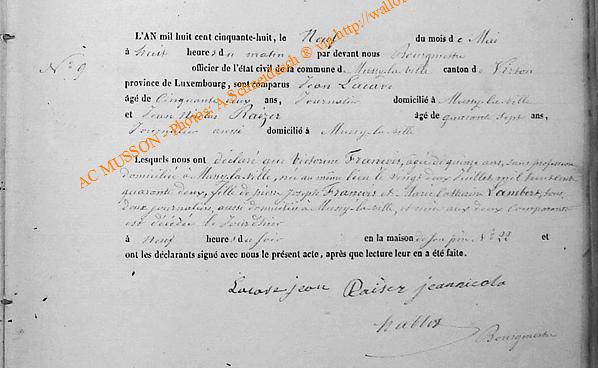 L'AN mil huit cent cinquante-huit, le Neuf du mois de Mai
N° 9
à huit heures du matin par devant nous Bourgmestre
officier de l'état civil de la commune de Mussy-la-ville canton de Virton
province de Luxembourg, sont comparus Jean Lacave
âgé de Cinquante deux ans, Journalier domicilié à Mussy-la-ville
et Jean Nicolas Raizer âgé de quarante Sept ans,
Journalier aussi domicilié à Mussy-la-ville
Lesquels nous ont déclaré que Victorine François, agée de quinze ans, sans profession
domiciliée à Mussy-la-ville, née au même lieu le vingt deux Juillet mil huit cent
quarante deux, fille de pierre Joseph François et Marie Catherine Lambert, tous
deux journaliers, aussi domiciliés à Mussy-la-ville, et aux deux Comparants
est décédée le Jour d'hier
à neuf heures du soir en la maison de son père N° 22 et
ont les déclarants signé avec nous le présent acte, après que lecture leur en a été faite.
Lacave jean Raiser jeannicola
Bourgmestre
AC MUSSON - Photos: A.Schmeidesch ® vip.http://wallon